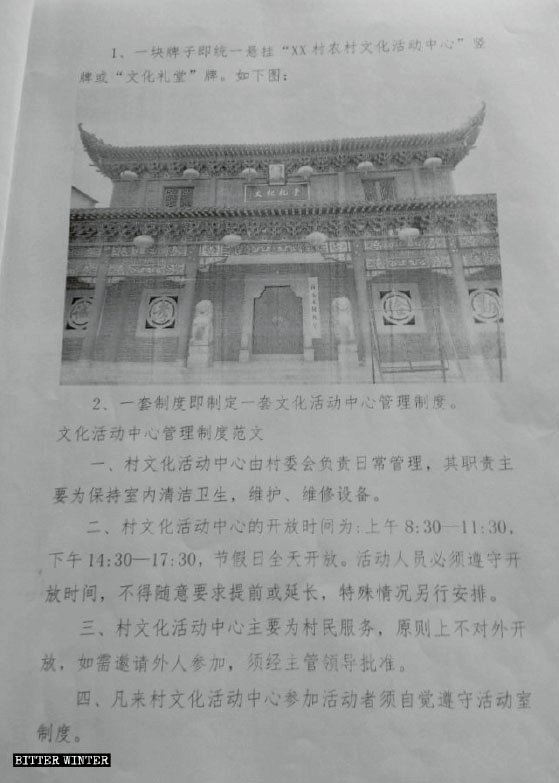 1、一块牌子即统一悬挂“XX村农村文化活动中心”竖
牌或“文化礼堂”牌。如下图：
文化礼堂
2、一套制度即制定一套文化活动中心管理制度。
文化活动中心管理制度范文
一、村文化活动中心由村委会负责日常管理，其职责主
要为保持室内清洁卫生，维护、维修设备。
二、村文化活动中心的开放时间为：上午8:30—11:30，
下午14:30—17:30，节假日全天开放。活动人员必须遵守开
放时间，不得随意要求提前或延长，特殊情况另行安排。
三、村文化活动中心主要为村民服务，原则上不对外开
放，如需邀请外人参加，须经主管领导批准。
四、凡来村文化活动中心参加活动者须自觉遵守活动室
制度。
BITTER WINTER